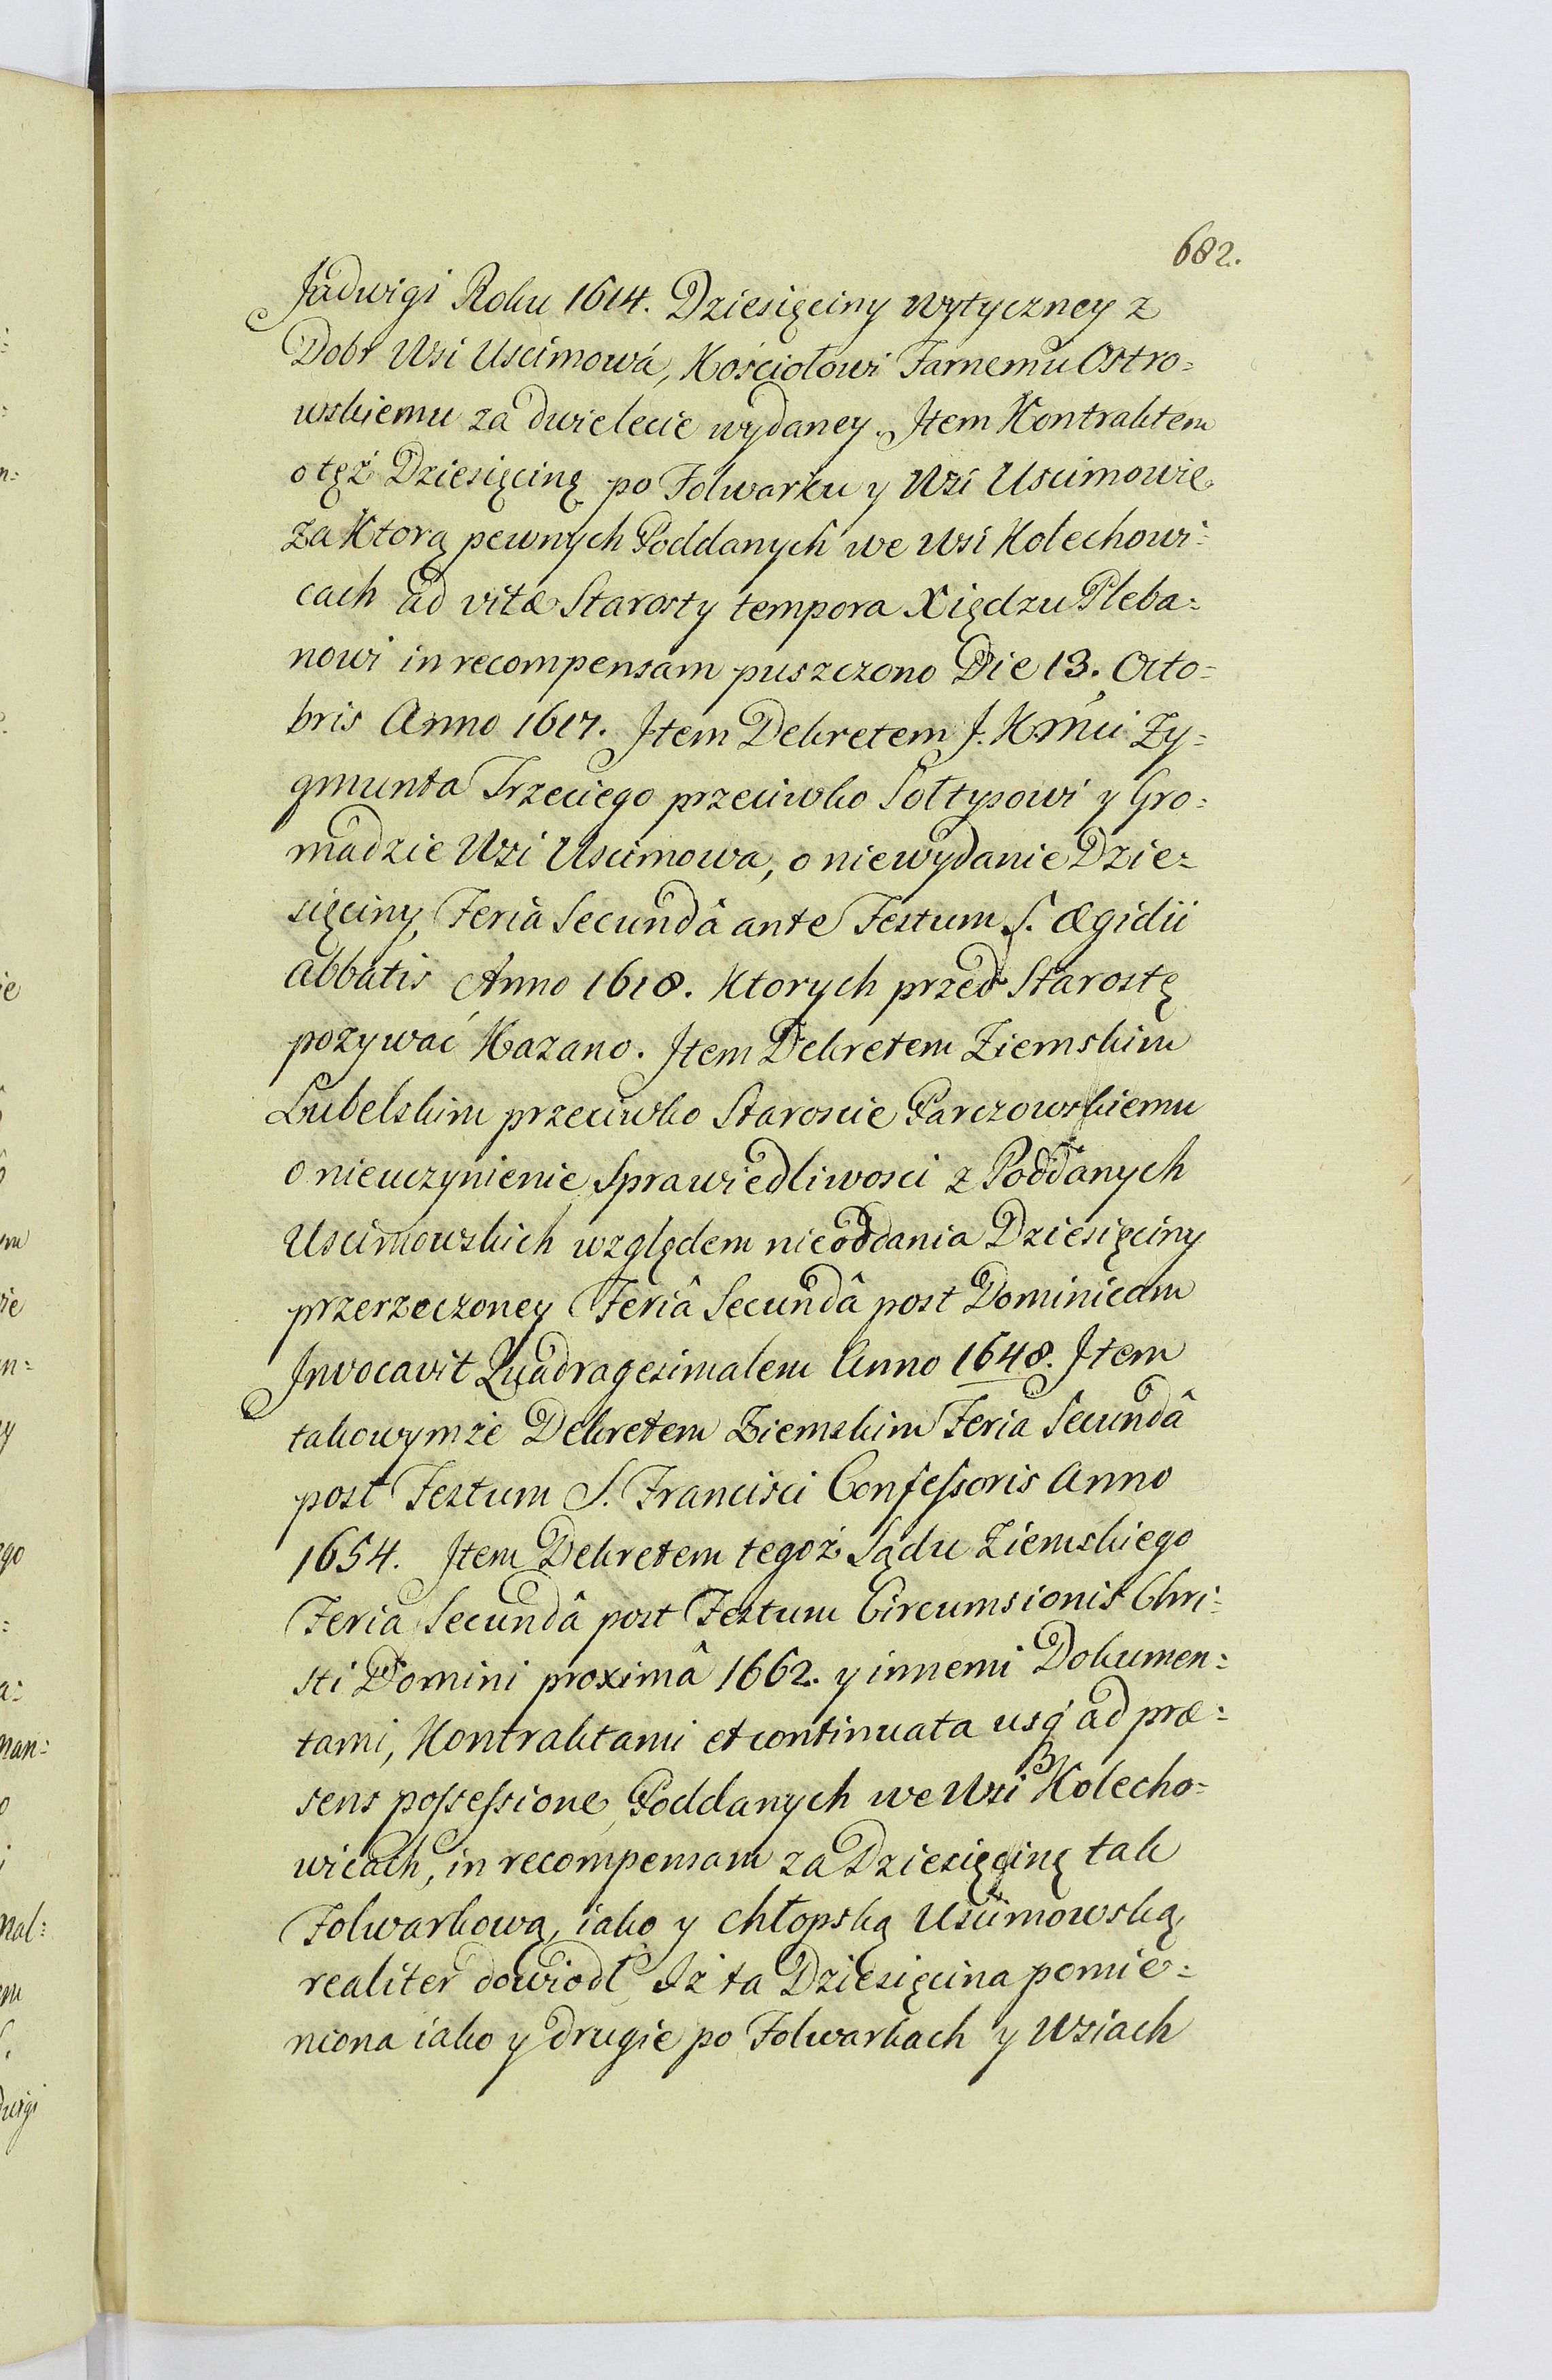 682.
Jadwigi Roku 1614. Dziesięciny wytyczney z
Dobr Wsi Uscimowá, Kościołowi Farnemu Ostro=
wskiemu za dwie lecie wydaney. Item Kontraktem
o tęż Dziesięcinę po Folwarku y Wsi Uscimowie
za Ktorą pewnych Poddanych we Wsi Kolechowi=
cach ad vitæ Starosty tempora Xiędzu Pleba=
nowi in recompensam puszczono Die 13. Octo=
bris Anno 1617. Item Dekretem J. Kmći Zy=
gmunta Trzeciego przeciwko Sołtysowi y Gro=
madzie Wsi Uscimowa, o niewydanie Dzie=
sięciny, Feria Secundâ ante Festum S. Ægidii
Abbatis Anno 1618. Ktorych przed Starostę
pozywać Kazano. Item Dekretem Ziemskim
Lubelskim przeciwko Staroscie Parczowskiemu
o nieuczynienie Sprawiedliwosci z Poddanych
Uscimowskich względem nieoddania Dziesięciny
przerzeczoney Feriâ Secundâ post Dominicam
Invocavit Quadragesimalem Anno 1648. Item
takowymże Dekretem Ziemskim Feria Secundâ
post Festum S. Francisci Confessoris Anno
1654. Item Dekretem tegoż Sądu Ziemskiego
Feria Secundâ post Festum Circumsionis Chri=
sti Domini proximâ 1662. y innemi Dokumen=
tami, Kontraktami et continuata usq́ ad præ=
sens possessione, Poddanych we Wsi Kolecho=
wicach, in recompensam za Dziesięcinę tak
Folwarkową, iako y chłopską Uscimowską,
realiter dowiodł, Iż ta Dziesięcina pomie=
niona iako y drugie po Folwarkach y Wsiach